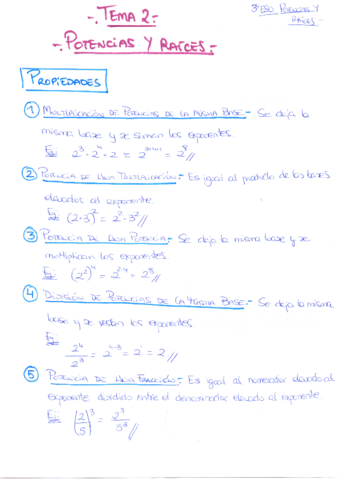 -. TEMA 2 .-
3º ESO POTENCIAS Y RAÍCES.-
-. POTENCIAS Y RAÍCES.-
PROPIEDADES
1 MULTIPLICACIÓN DE POTENCIAS DE LA MISMA BASE.- Se deja la
misma base y se suman los exponentes.
Ej: 2³ · 2⁴ · 2 = 2³⁺⁴⁺¹ = 2⁸ //
2 POTENCIA DE UNA MULTIPLICACIÓN.- Es igual al producto de las bases
elevados al exponente.
Ej: (2·3)² = 2² · 3² //
3 POTENCIA DE UNA POTENCIA.- Se deja la misma base y se
multiplican los exponentes.
Ej: (2²)⁴ = 2²·⁴ = 2⁸ //
4 DIVISIÓN DE POTENCIAS DE LA MISMA BASE.- Se deja la misma
base y se restan los exponentes.
Ej:
2⁴/2³ = 2⁴⁻³ = 2¹ = 2 //
5 POTENCIA DE UNA FRACCIÓN.- Es igual al numerador elevado al
exponente dividido entre el denominador elevado al exponente.
Ej: (2/5)³ = 2³/5³ //